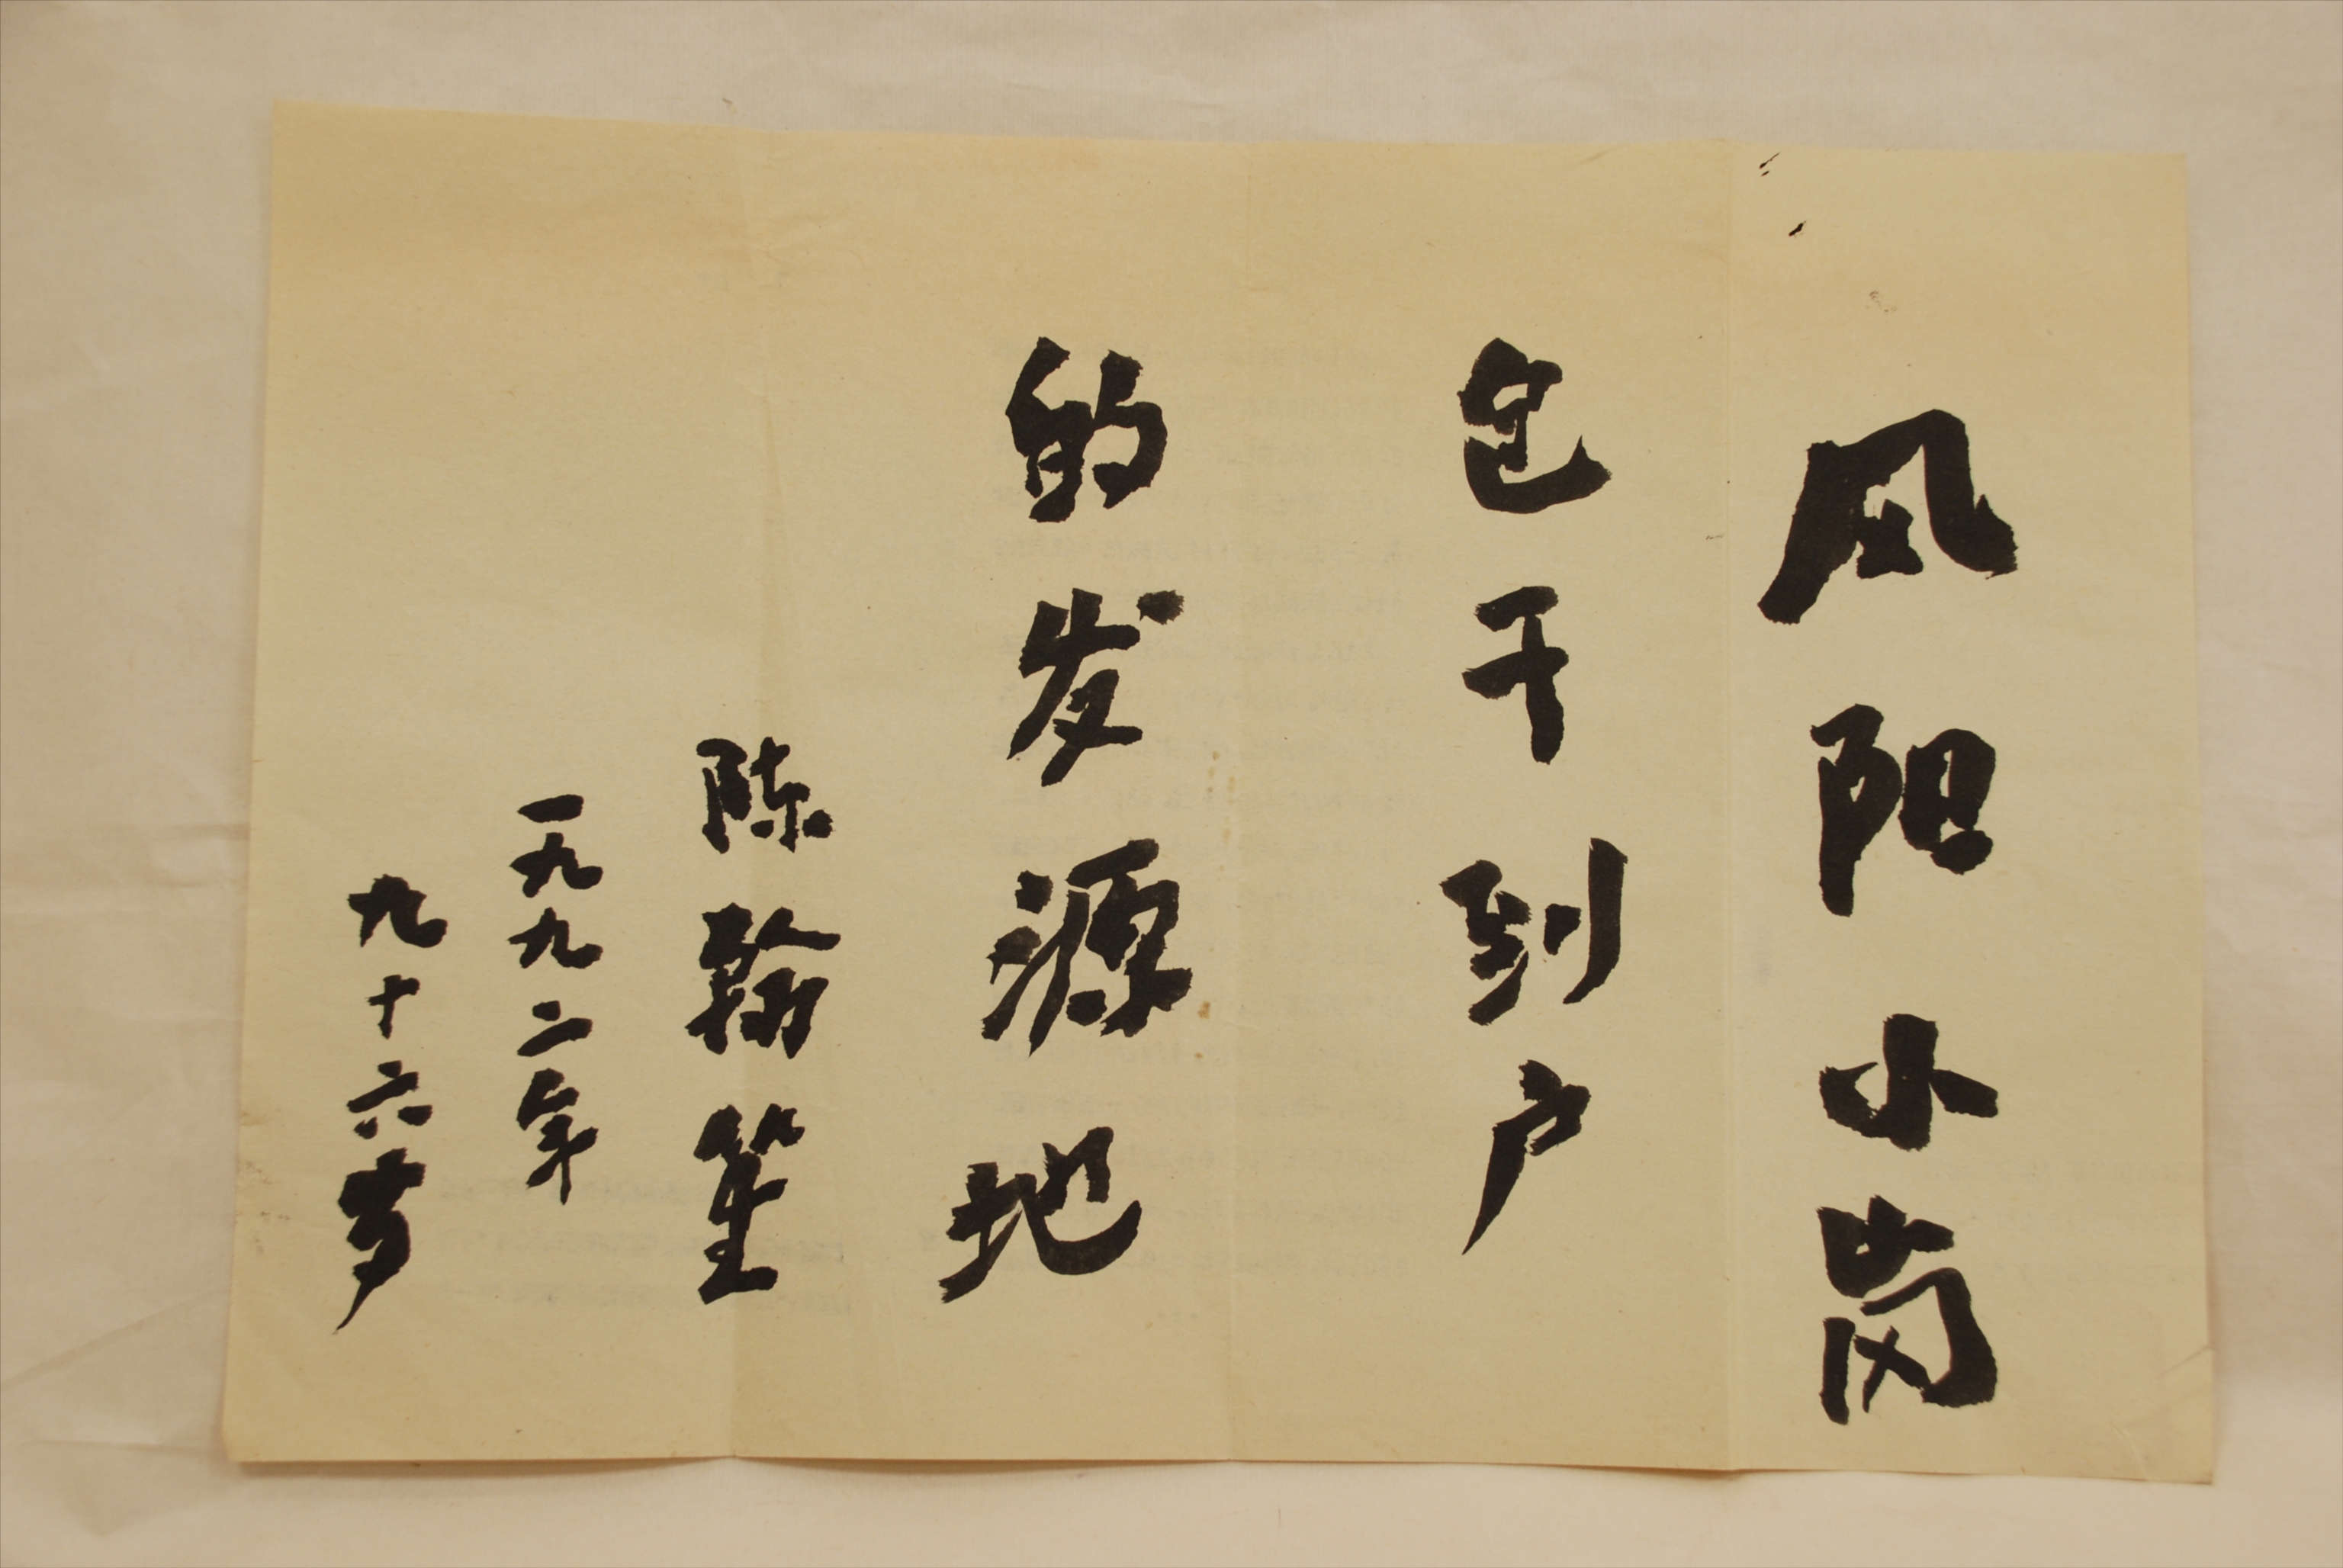 凤阳小岗
包干到户
的发源地
陈翰笙
一九九二年
九十六岁